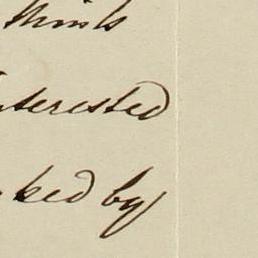 thinks
nterested
ked by